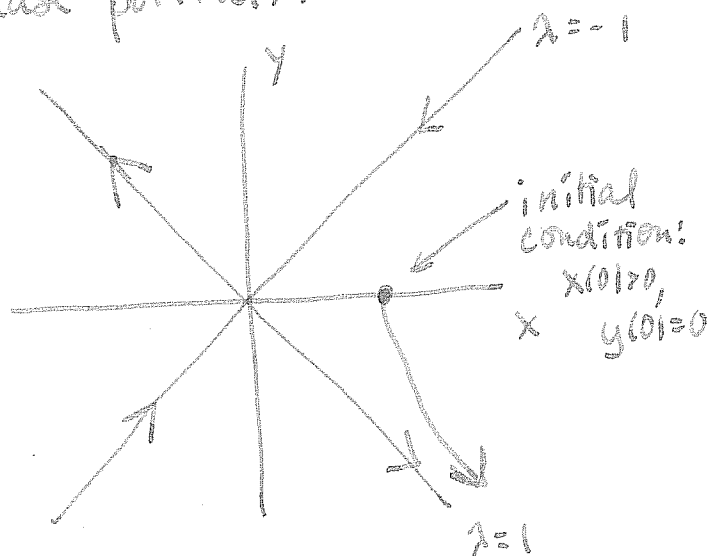 y
λ=-1
initial
condition:
x(0)>0,
x
y(0)=0
λ=1